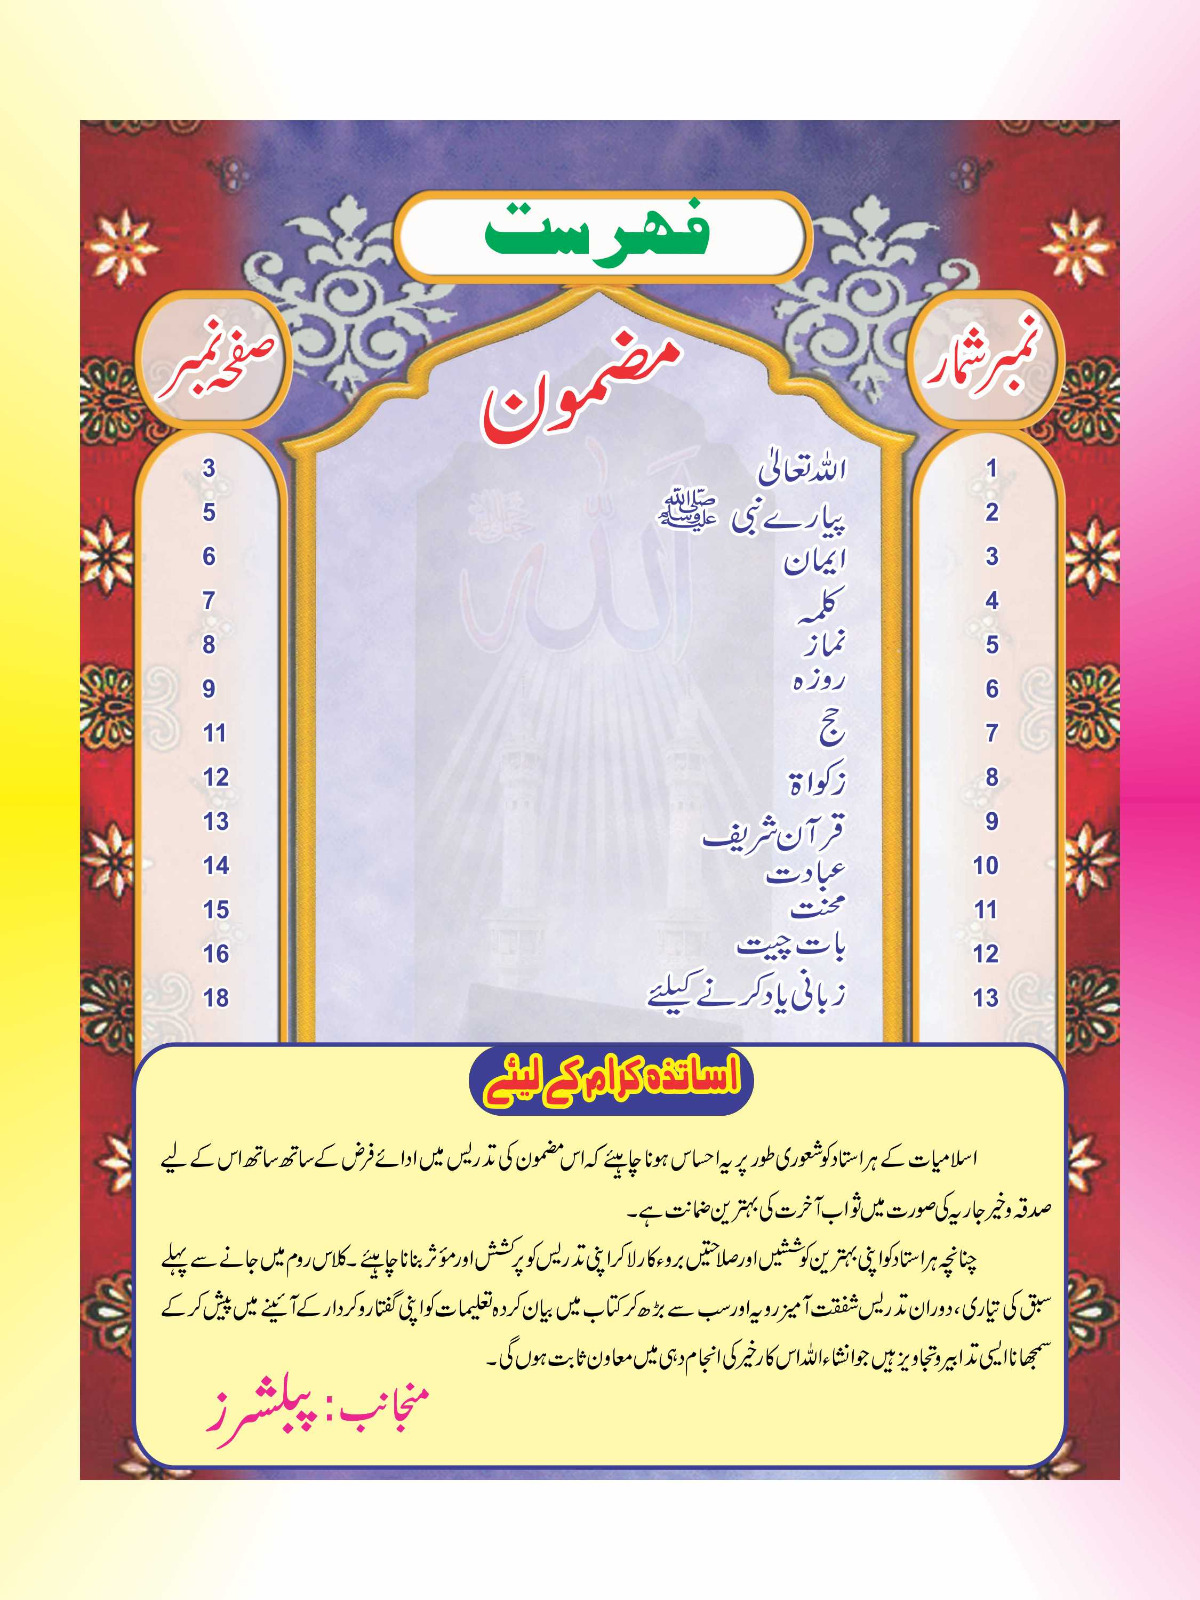 فہرست
نمبر شمار مضمون صفحہ نمبر
1 اللہ تعالیٰ 3
2 پیارے نبی ﷺ 5
3 ایمان 6
4 کلمہ 7
5 نماز 8
6 روزہ 9
7 حج 11
8 زکواۃ 12
9 قرآن شریف 13
10 عبادت 14
11 محنت 15
12 بات چیت 16
13 زبانی یاد کرنے کیلئے 18
اساتذہ کرام کے لیئے
اسلامیات کے ہر استاد کو شعوری طور پر یہ احساس ہونا چاہیئے کہ اس مضمون کی تدریس میں ادائے فرض کے ساتھ ساتھ اس کے لیے
صدقہ و خیر جاریہ کی صورت میں ثواب آخرت کی بہترین ضمانت ہے۔
چنانچہ ہر استاد کو اپنی بہترین کوششیں اور صلاحتیں بروءکار لا کر اپنی تدریس کو پرکشش اور مؤثر بنانا چاہیئے ۔ کلاس روم میں جانے سے پہلے
سبق کی تیاری، دوران تدریس شفقت آمیز رویہ اور سب سے بڑھ کر کتاب میں بیان کردہ تعلیمات کو اپنی گفتار و کردار کے آئینے میں پیش کر کے
سمجھانا ایسی تدابیر و تجاویز ہیں جو انشاء اللہ اس کار خیر کی انجام دہی میں معاون ثابت ہوں گی ۔
منجانب : پبلشرز